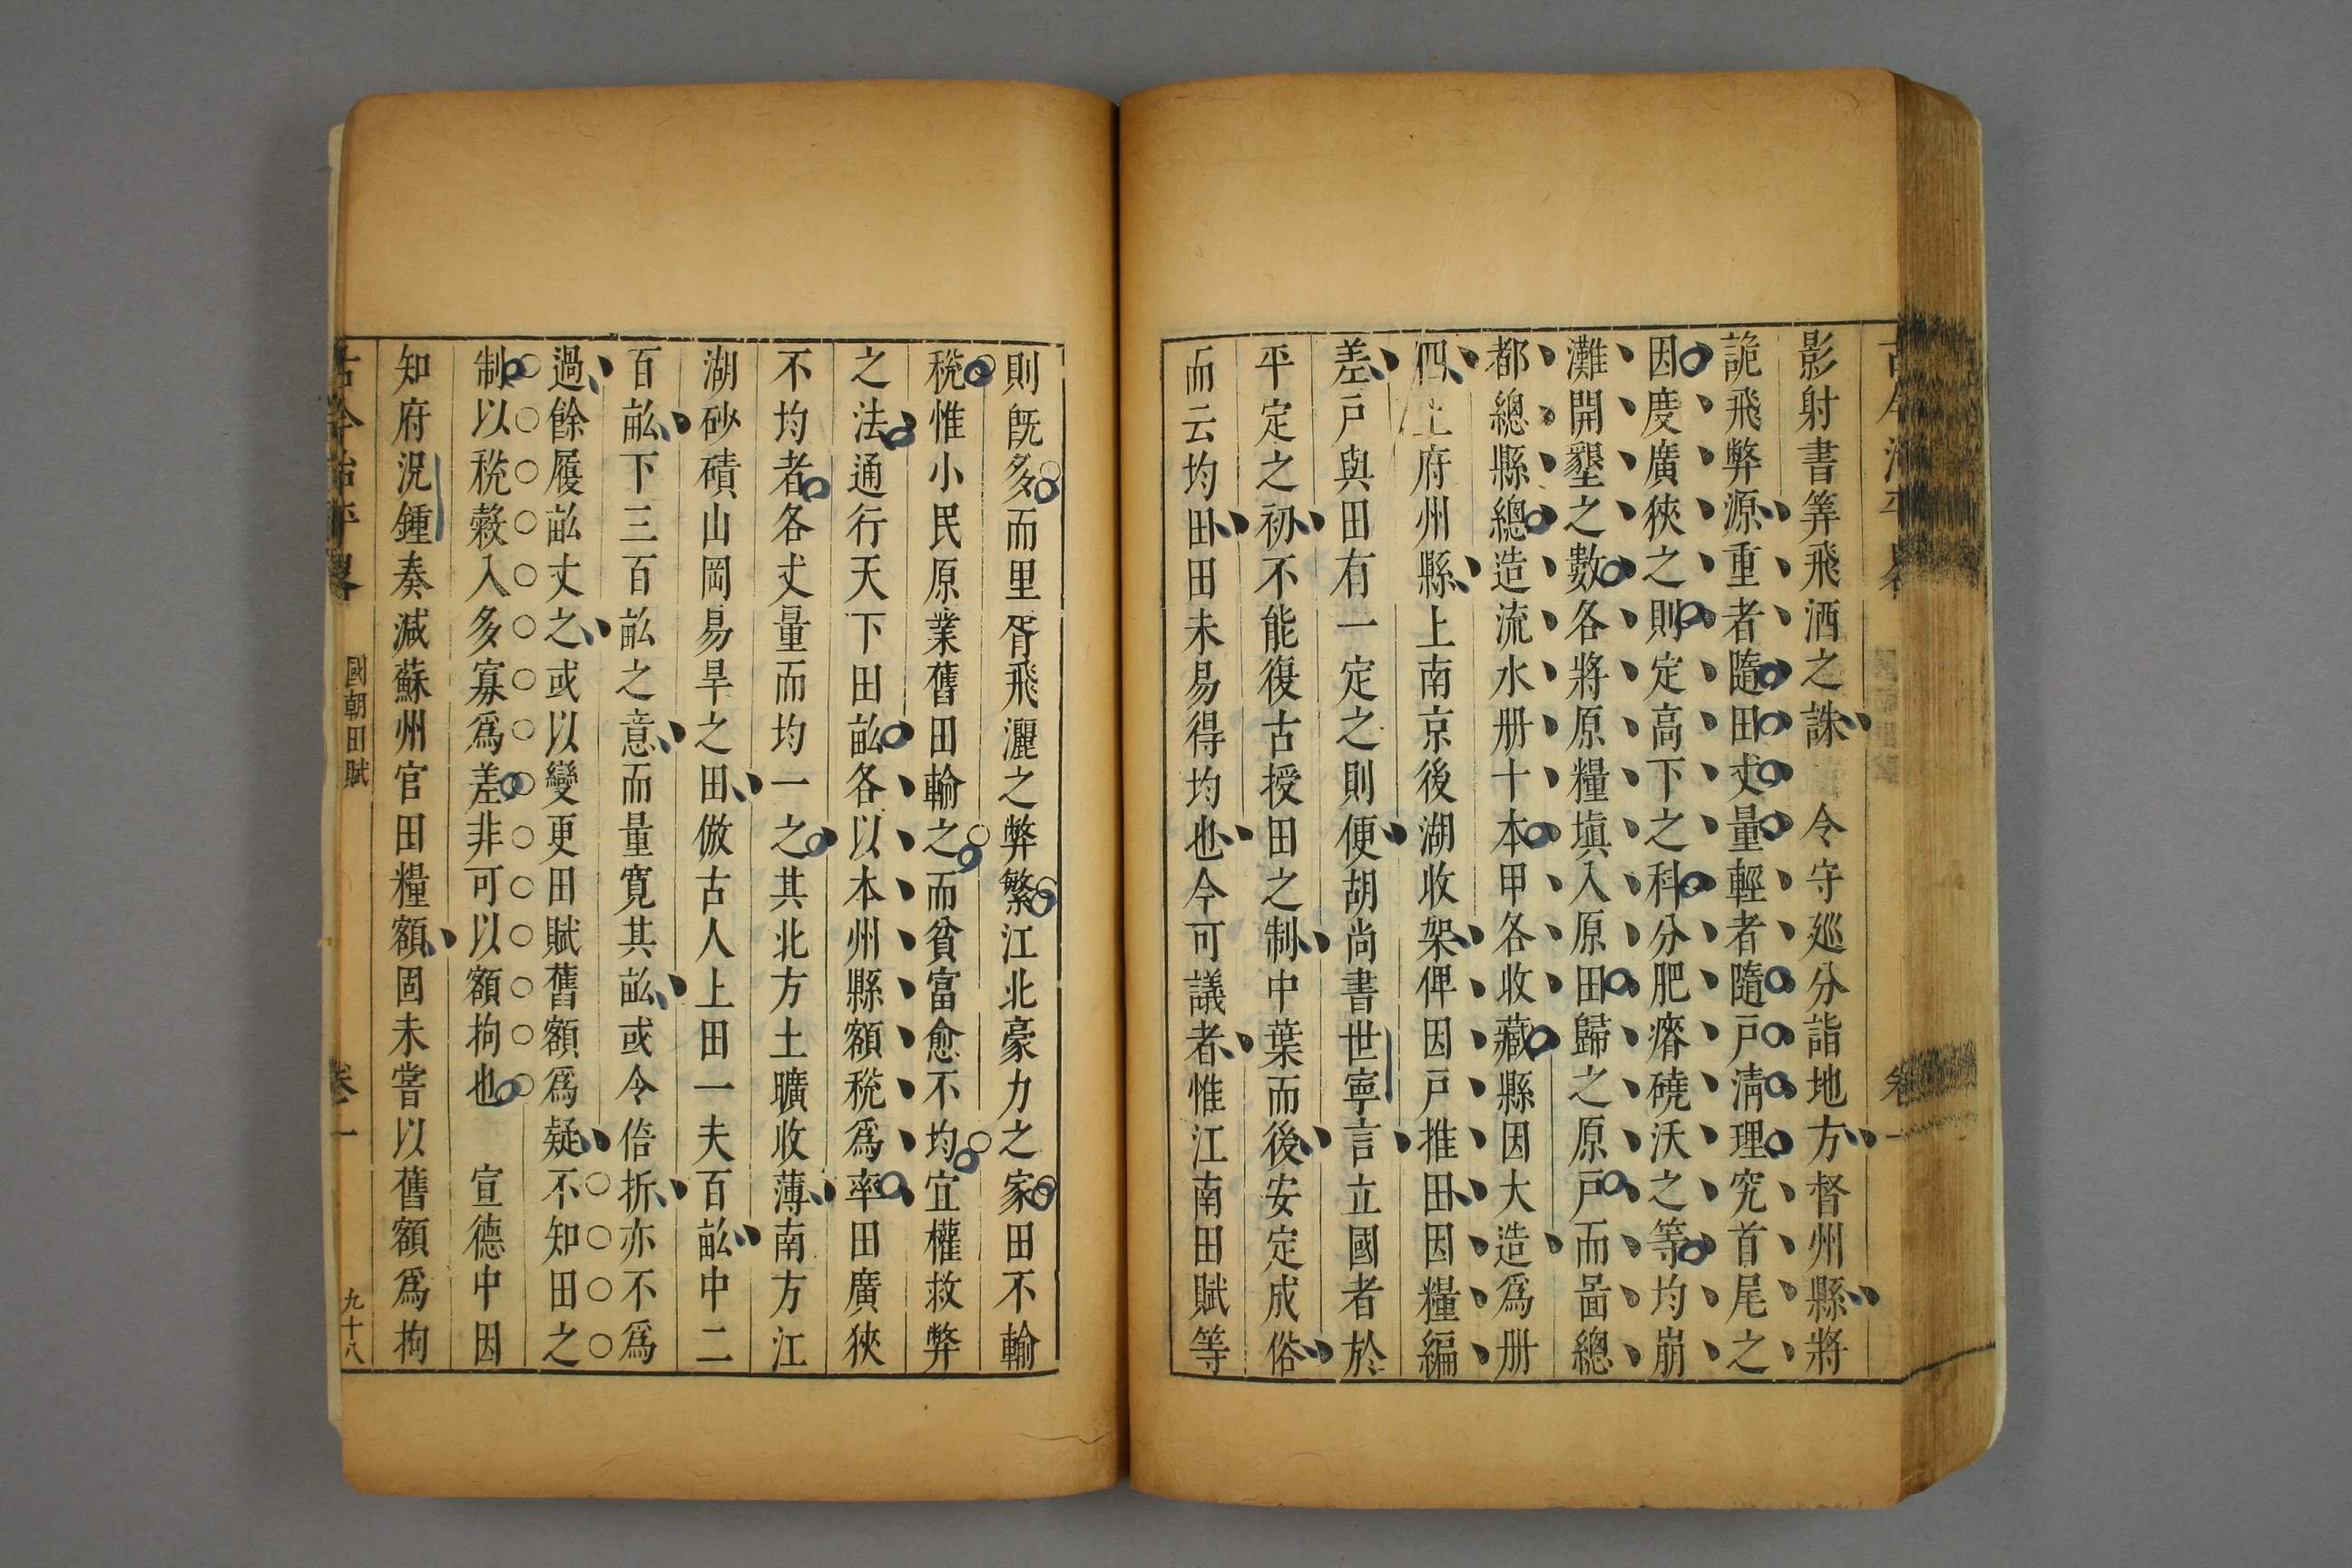 影射書筭飛洒之誅　令守廵分詣地方督州縣將
詭飛弊源重者隨田丈量輕者隨戶淸理究首尾之
因度廣狹之則定高下之科分肥瘠磽沃之等均崩
灘開墾之數各將原糧塡入原田歸之原戶而啚總
都總縣總造流水册十本甲各收藏縣因大造爲册
四上府州縣上南京後湖收架俾因戶推田因糧編
差戶與田有一定之則便胡尚書世寧言立國者於
平定之初不能復古授田之制中葉而後安定成俗
而云均田田未易得均也今可議者惟江南田賦等
則旣多而里胥飛灑之弊繁江北豪力之家田不輸
稅惟小民原業舊田輸之而貧富愈不均宜權救弊
之法通行天下田畝各以本州縣額稅爲率田廣狹
不均者各丈量而均一之其北方土曠收薄南方江
湖砂磧山岡易旱之田倣古人上田一夫百畝中二
百畝下三百畝之意而量寬其畝或令倍折亦不爲
過餘履畝丈之或以變更田賦舊額爲疑不知田之
制以稅糓入多寡爲差非可以額拘也　宣德中因
知府況鍾奏減蘇州官田糧額固未甞以舊額爲拘
古今治平畧　國朝田賦　卷一　九十八